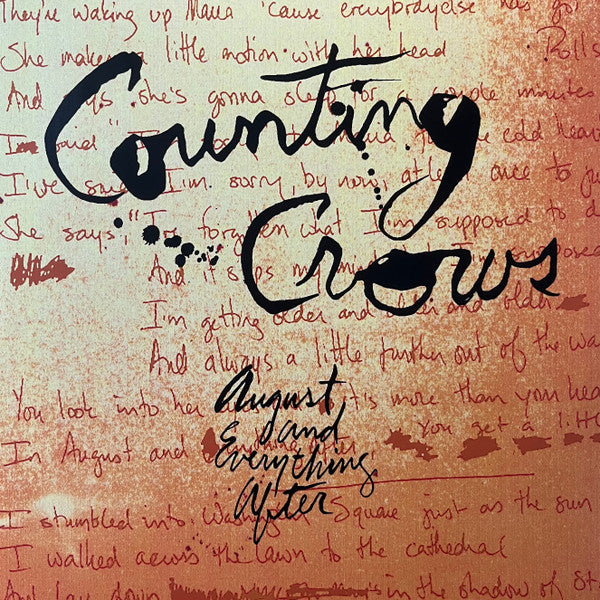 They're waking up Maria 'cause everybody else has got
She makes a little motion with her head
Rolls
And says she's gonna sleep for a couple minutes
Counting
I said I'm to Maria the cold
I've said I'm sorry, by now, at least once to
Crows
She says, "I've forgotten what I'm supposed to d
And it slips my mind I'm supposed
I'm getting older and older and older
And always a little further out of the wa
You look into her it's more than your hea
August
and
Everything
After
In August and
You get a little
I stumbled into Washington Square just as the sun
I walked across the lawn to the cathedral
And lay down in the shadow of St